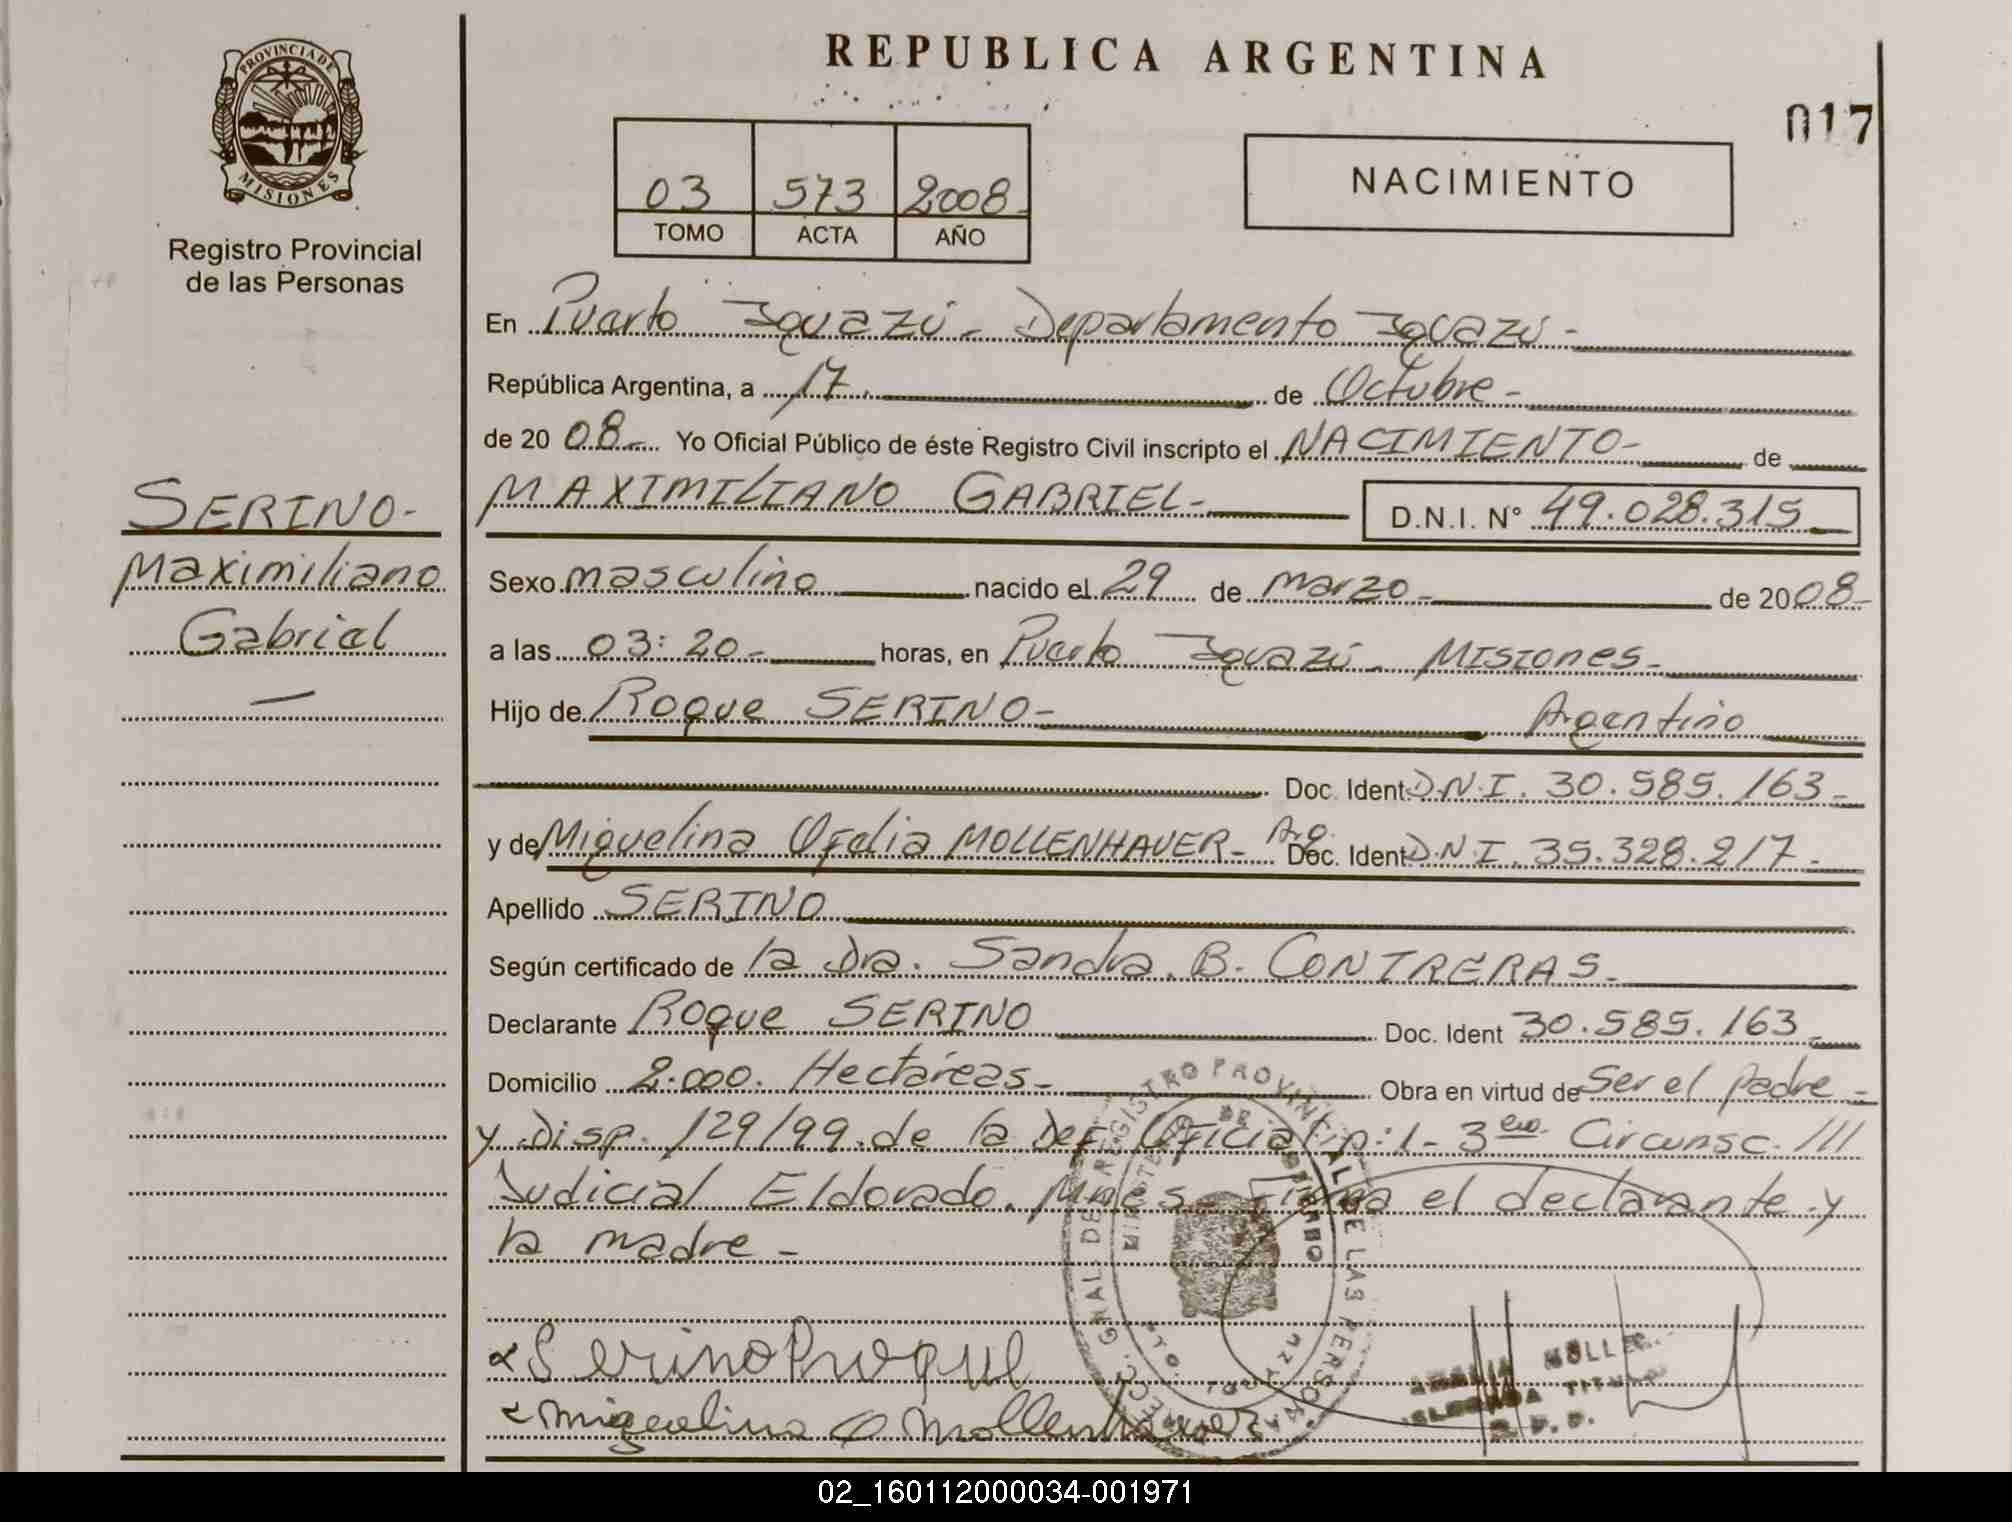 REPUBLICA ARGENTINA
017
PROVINCIA DE
MISIONES
Registro Provincial
de las Personas
03 573 2008-
TOMO ACTA AÑO
NACIMIENTO
En Puerto Iguazú - Departamento Iguazú -
República Argentina, a 17. de Octubre -
de 20 08- Yo Oficial Público de éste Registro Civil inscripto el NACIMIENTO- de
MAXIMILIANO GABRIEL- D.N.I. N° 49.028.315
SERINO-
Maximiliano
Gabriel
Sexo masculino nacido el 29 de marzo - de 20 08-
a las 03:20- horas, en Puerto Iguazú - Misiones-
Hijo de Roque SERINO- Argentino
Doc. Ident. D.N.I. 30.585.163-
y de Miguelina Ofelia MOLLENHAUER- Arg. Doc. Ident D.N.I. 35.328.217-
Apellido SERINO
Según certificado de la Dra. Sandra. B. CONTRERAS-
Declarante Roque SERINO Doc. Ident 30.585.163
Domicilio 2.000. Hectáreas- Obra en virtud de Ser el padre -
y Disp. 129/99. de la Def. Oficial n: 1- 3era. Circunsc. ///
Judicial Eldorado. Mnes- Firma el declarante y
la madre-
Serino Roque
Miguelina O Mollenhauer
REGISTRO PROVINCIAL DE LAS PERSONAS
02_160112000034-001971